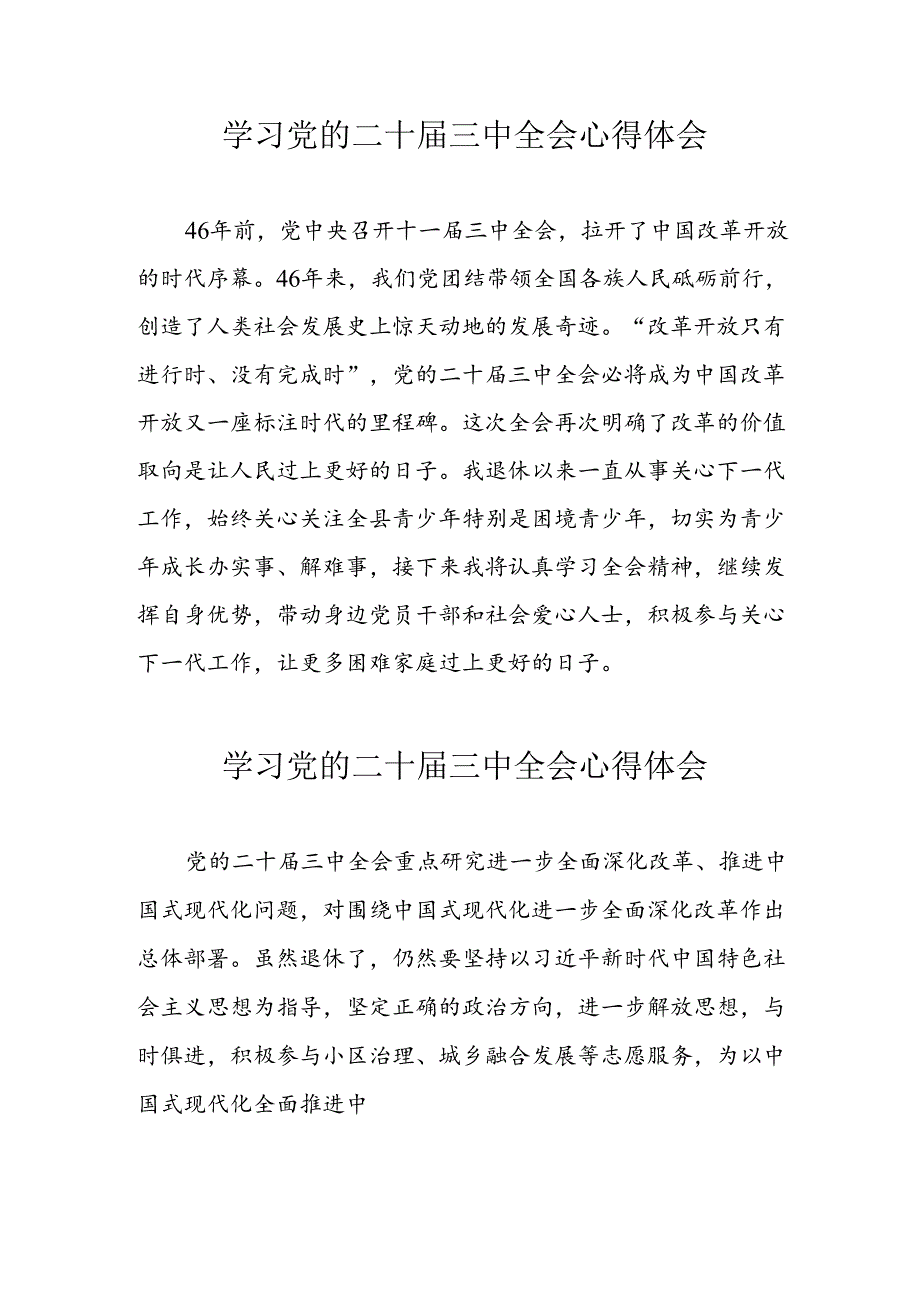 学习党的二十届三中全会心得体会
46年前，党中央召开十一届三中全会，拉开了中国改革开放
的时代序幕。46年来，我们党团结带领全国各族人民砥砺前行，
创造了人类社会发展史上惊天动地的发展奇迹。“改革开放只有
进行时、没有完成时”，党的二十届三中全会必将成为中国改革
开放又一座标注时代的里程碑。这次全会再次明确了改革的价值
取向是让人民过上更好的日子。我退休以来一直从事关心下一代
工作，始终关心关注全县青少年特别是困境青少年，切实为青少
年成长办实事、解难事，接下来我将认真学习全会精神，继续发
挥自身优势，带动身边党员干部和社会爱心人士，积极参与关心
下一代工作，让更多困难家庭过上更好的日子。
学习党的二十届三中全会心得体会
党的二十届三中全会重点研究进一步全面深化改革、推进中
国式现代化问题，对围绕中国式现代化进一步全面深化改革作出
总体部署。虽然退休了，仍然要坚持以习近平新时代中国特色社
会主义思想为指导，坚定正确的政治方向，进一步解放思想，与
时俱进，积极参与小区治理、城乡融合发展等志愿服务，为以中
国式现代化全面推进中